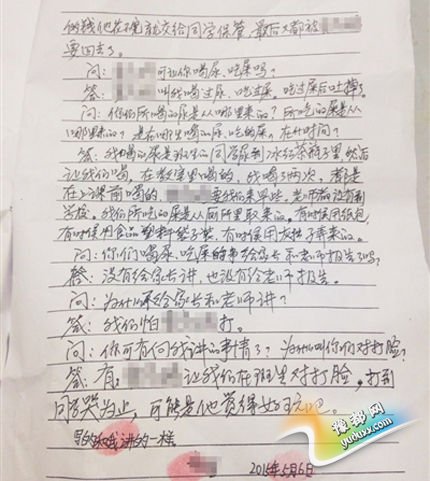 的钱他花不完就交给同学保管,最后又都被
要回去了。
问: 可让你喝尿、吃屎吗?
答: 叫我喝过尿、吃过屎。吃过屎后吐掉了
问:你们所喝的尿是从哪里来的?所吃的屎是从
哪里来的?是在哪里喝的尿、吃的屎。在什时间?
答:我喝的尿是班里的同学尿到冰红茶瓶子里,然后
让我们喝,在教室里喝的,我喝了两次,都是
在上课前喝的, 要我们来早些,老师都没有到
学校。我们所吃的屎是从厕所里取来的。有时候用纸包,
有时候用食品塑料袋子装,有时候用灰批子弄来的。
问:你们喝尿、吃屎的事给家长和老师报告了吗?
答:没有给家长讲,也没有给老师报告。
问:为什么不给家长和老师讲?
答:我们怕 打。
问:你可有何我讲的事情了?为什么叫你们对打脸?
答:有, 让我们在班里对打脸,打到
同学哭为止,可能是他觉得好玩吧。
是的和我讲的一样。
2015年5月6日
豫都网
yuduxx.com